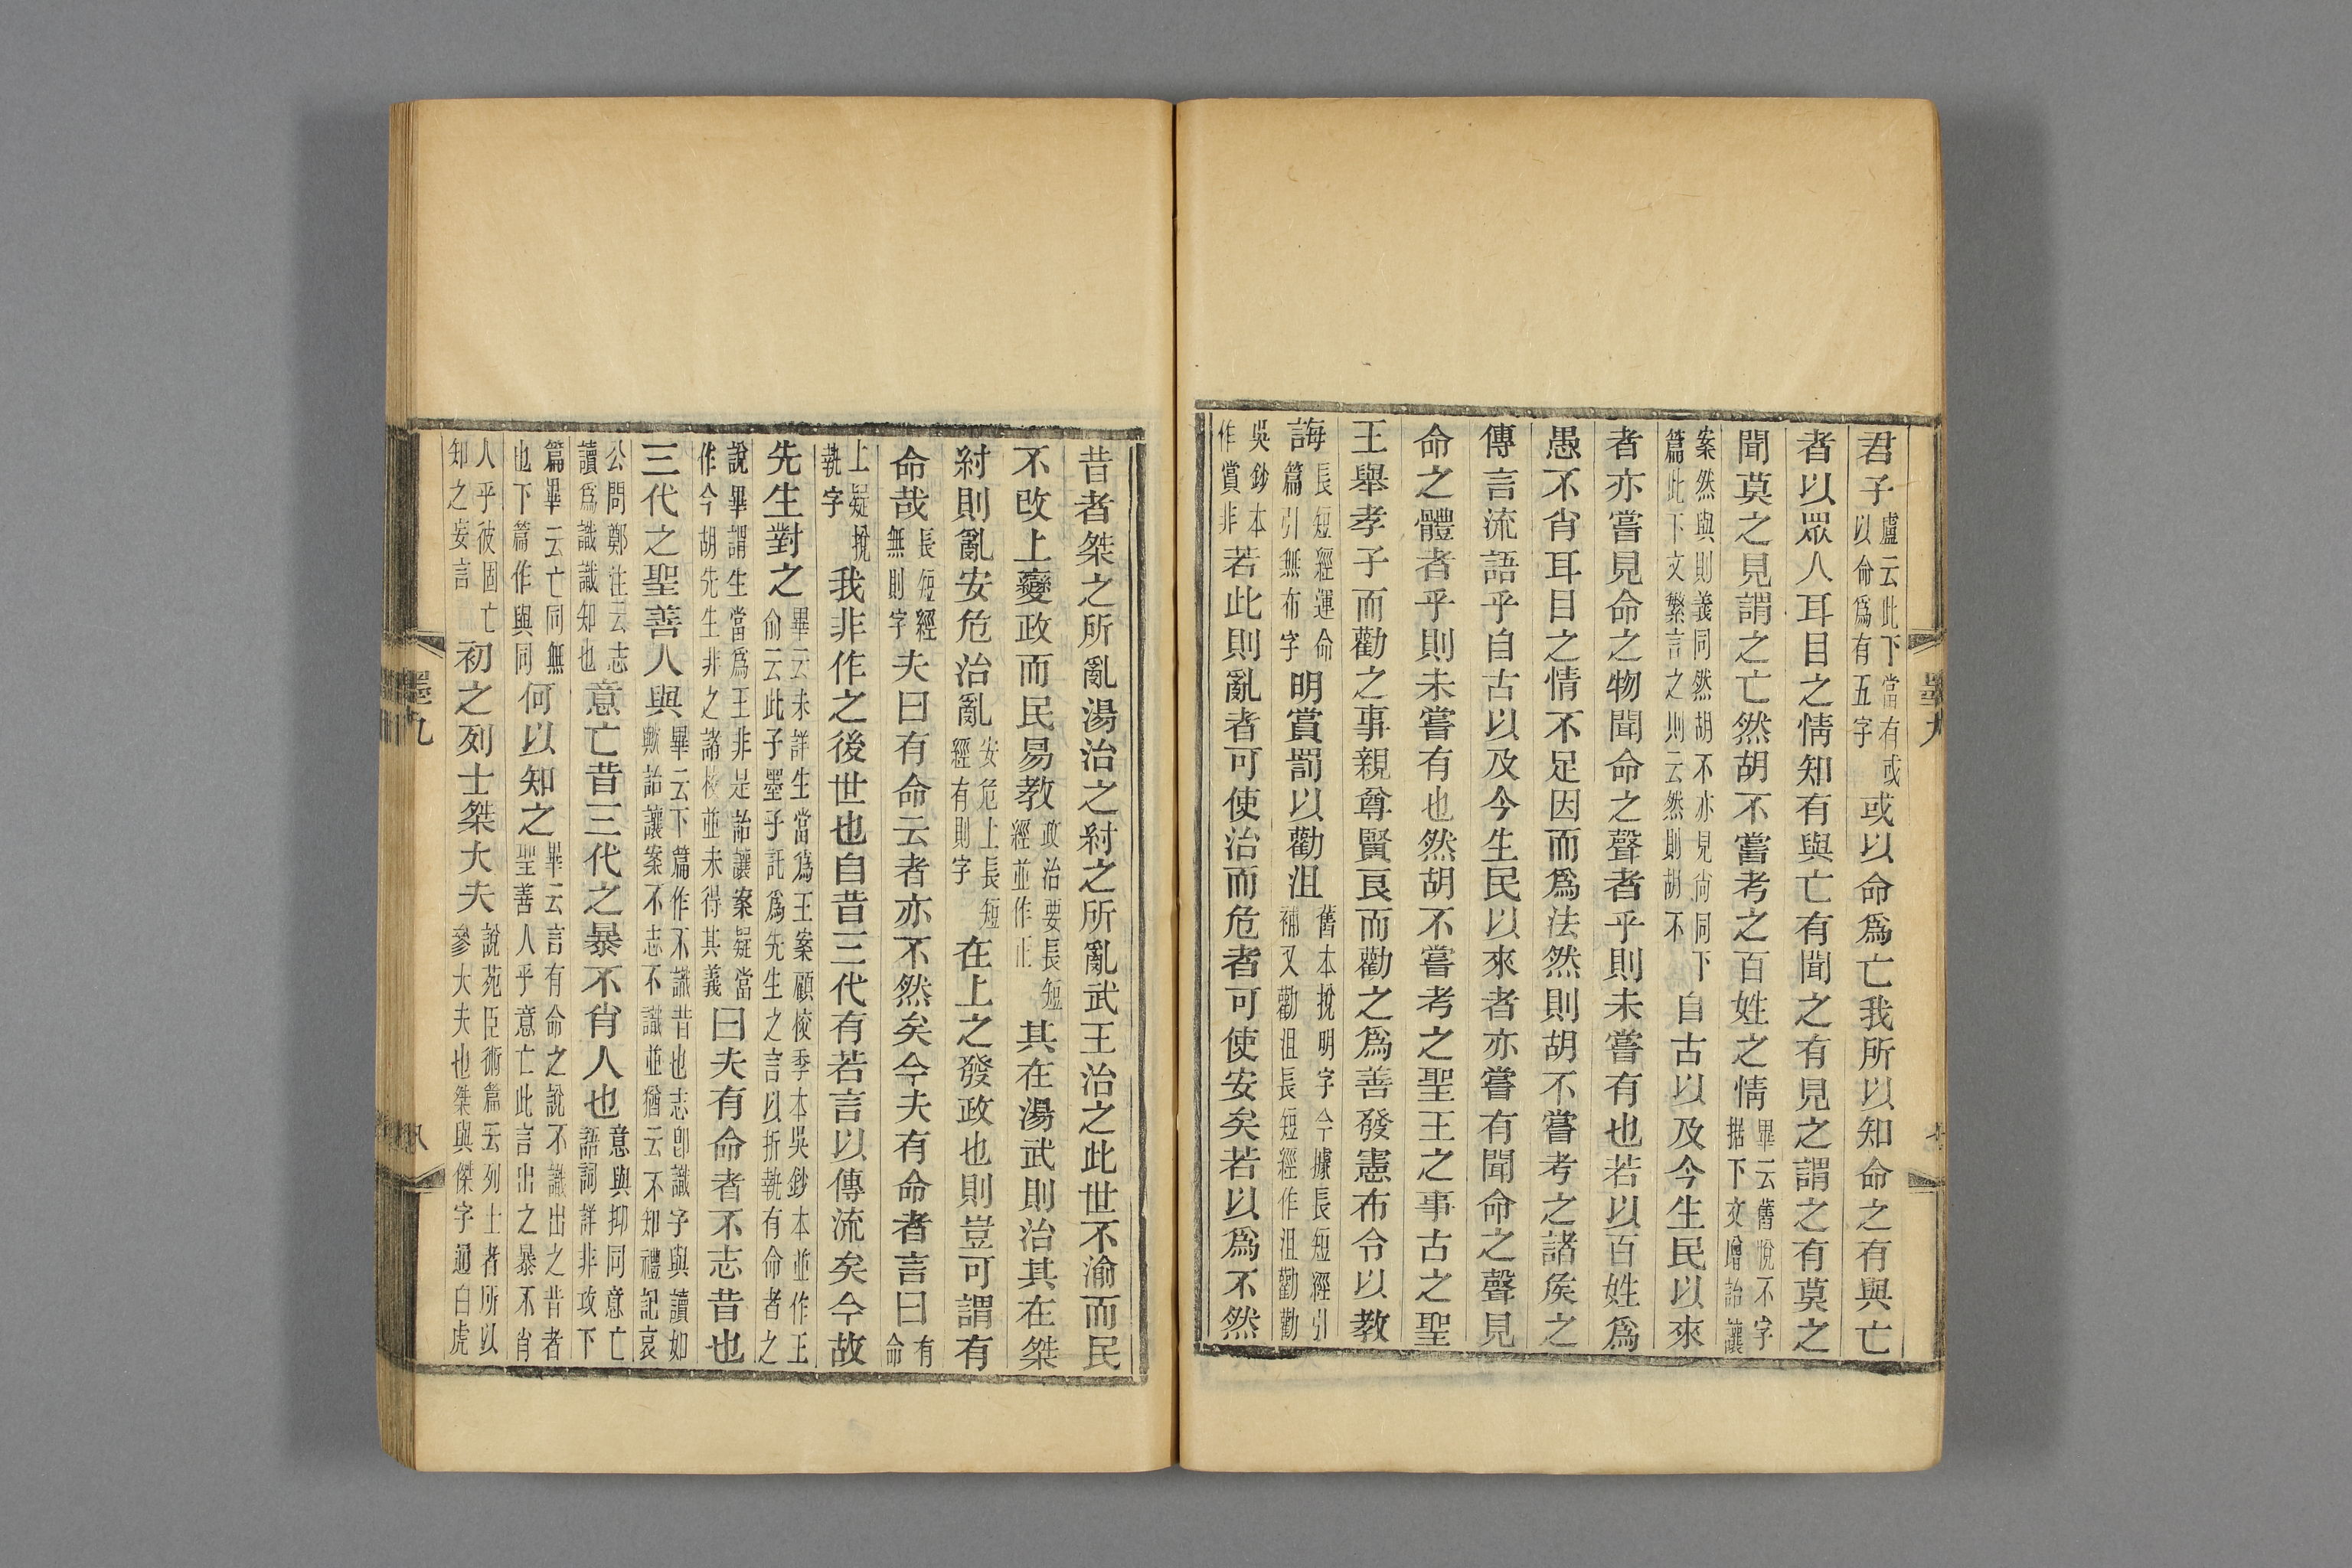 君子盧云此下當有或以命爲有五字或以命爲亡我所以知命之有與亡
者以眾人耳目之情知有與亡有聞之有見之謂之有莫之
聞莫之見謂之亡然胡不嘗考之百姓之情畢云舊脫不字据下文增詒讓
案然與則義同然胡不亦見尙同下篇此下文繁言之則云然則胡不自古以及今生民以來
者亦嘗見命之物聞命之聲者乎則未嘗有也若以百姓爲
愚不肖耳目之情不足因而爲法然則胡不嘗考之諸矦之
傳言流語乎自古以及今生民以來者亦嘗有聞命之聲見
命之體者乎則未嘗有也然胡不嘗考之聖王之事古之聖
王舉孝子而勸之事親尊賢良而勸之爲善發憲布令以教
誨長短經運命篇引無布字明賞罰以勸沮舊本挩明字今據長短經引補又勸沮長短經作沮勸勸
吳鈔本作賞非若此則亂者可使治而危者可使安矣若以爲不然
昔者桀之所亂湯治之紂之所亂武王治之此世不渝而民
不改上變政而民易教政治要長短經並作正其在湯武則治其在桀
紂則亂安危治亂安危上長短經有則字在上之發政也則豈可謂有
命哉長短經無則字夫曰有命云者亦不然矣今夫有命者言曰有命
上疑挩執字我非作之後世也自昔三代有若言以傳流矣今故
先生對之畢云未詳生當爲王案顧校季本吳鈔本並作王俞云此子墨子託爲先生之言以折執有命者之
說畢謂生當爲王非是詒讓案疑當作今胡先生非之諸校並未得其義曰夫有命者不志昔也
三代之聖善人與畢云下篇作不識昔也志卽識字與讀如歟詒讓案不志不識並猶云不知禮記哀
公問鄭注云志讀爲識識知也意亡昔三代之暴不肖人也意與抑同意亡語詞詳非攻下
篇畢云亡同無也下篇作與同何以知之畢云言有命之說不識出之昔者聖善人乎意亡此言出之暴不肖
人乎彼固亡知之妄言初之列士桀大夫說苑臣術篇云列士者所以參大夫也桀與傑字通白虎
墨九
八